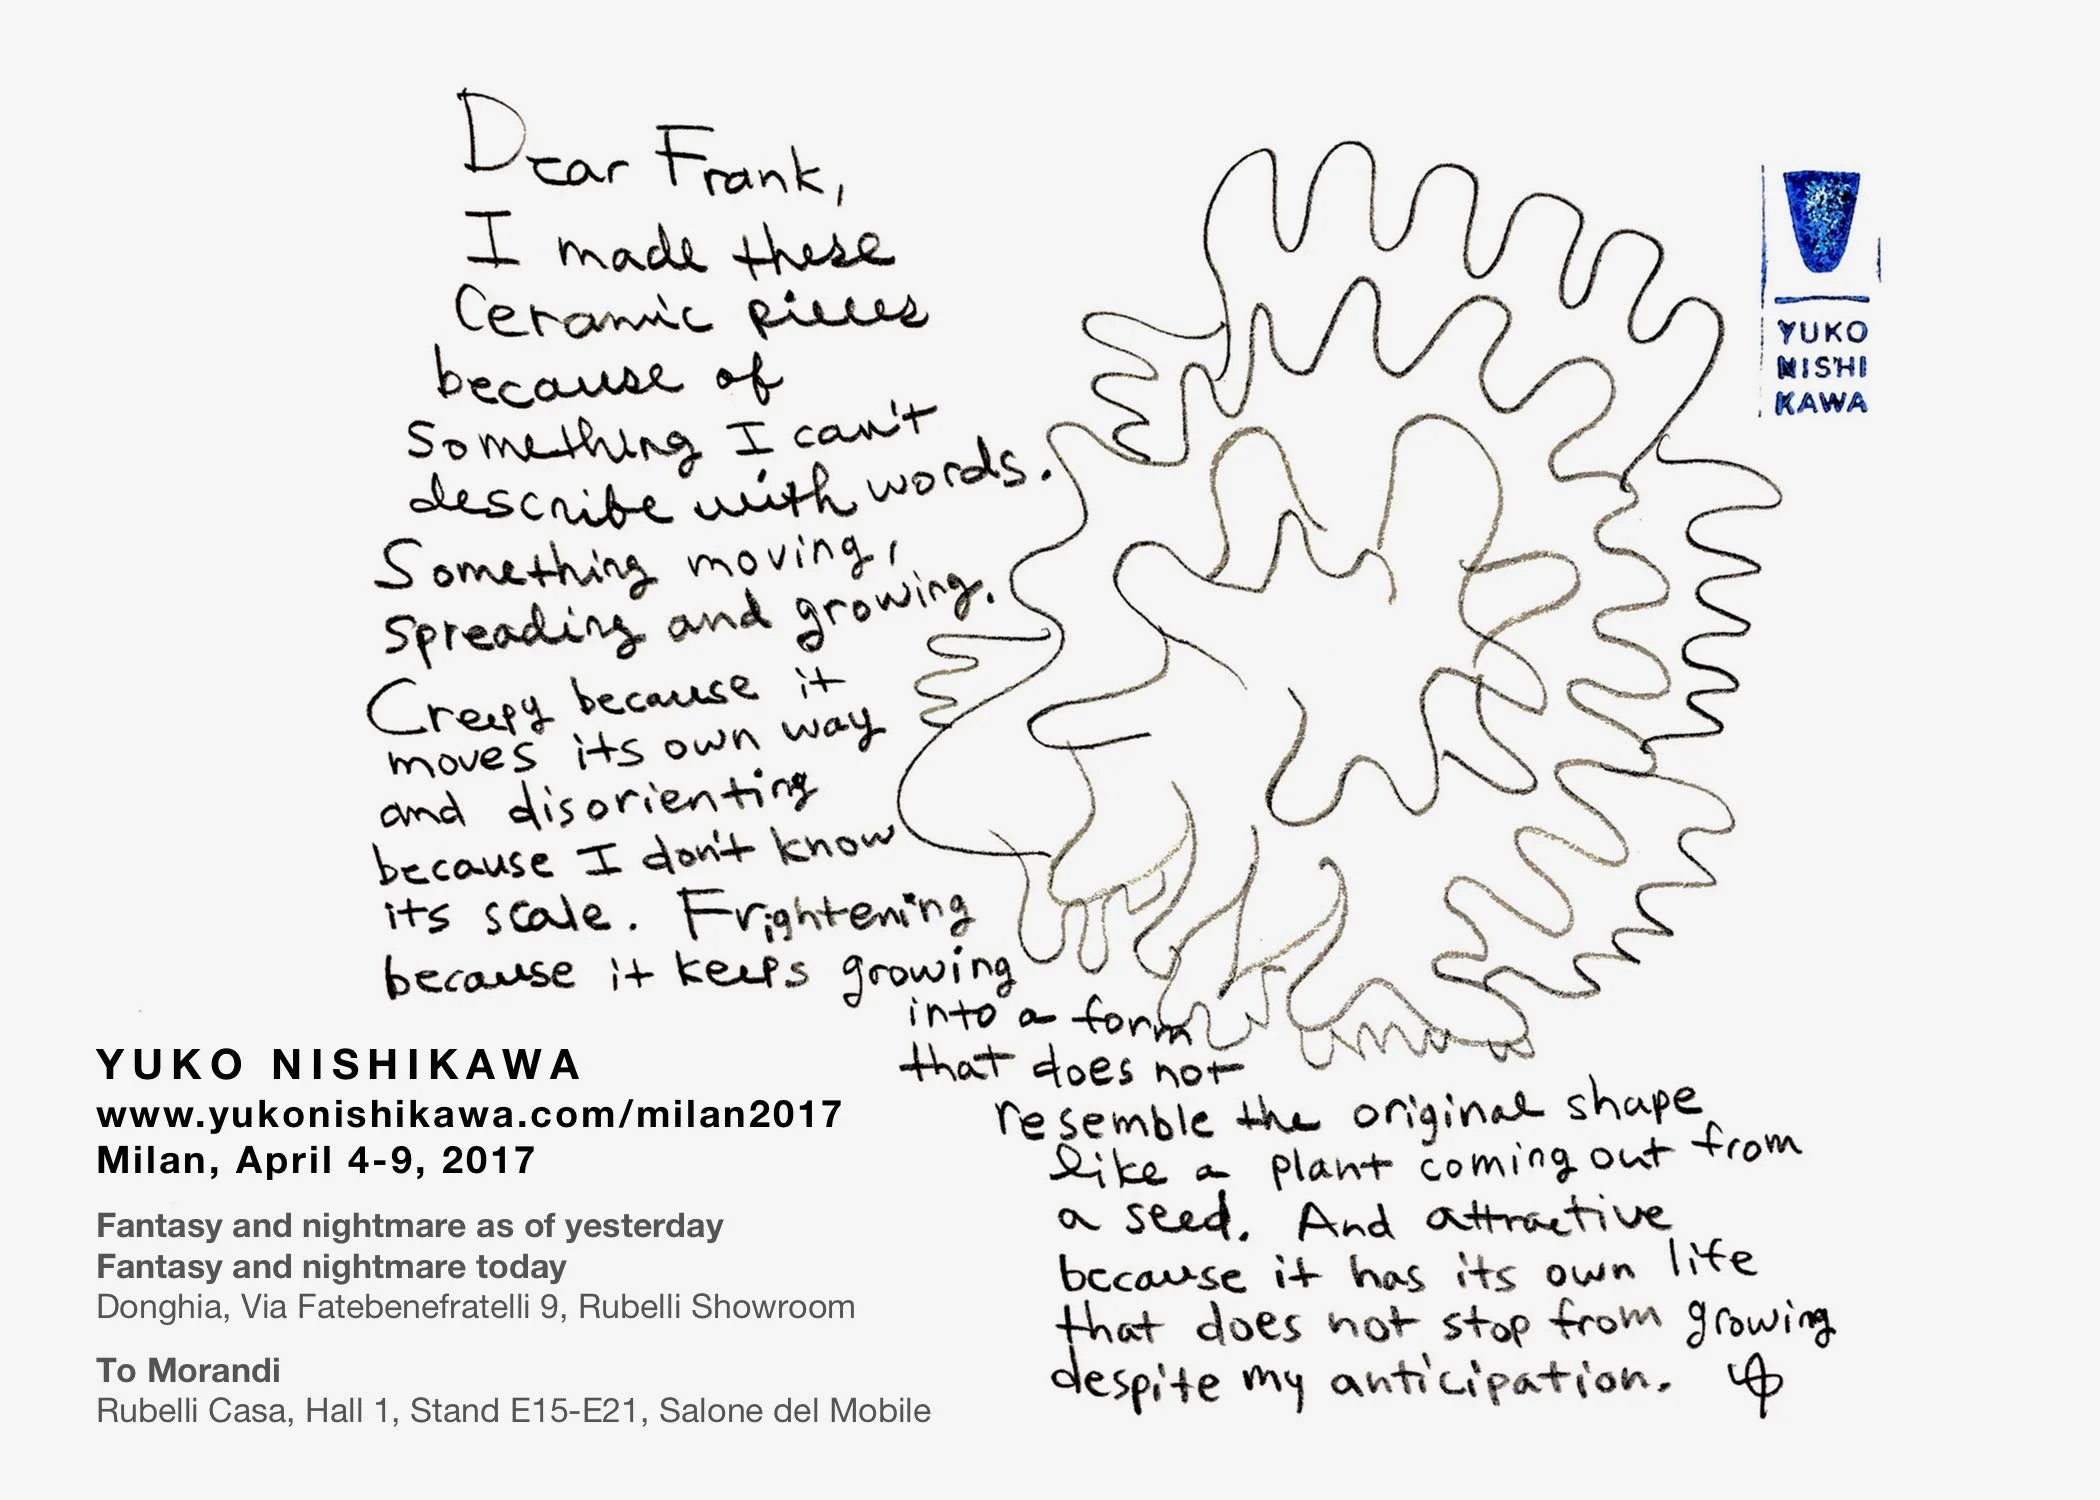 Dear Frank,
I made these
Ceramic pieces
because of
Something I can't
describe with words.
Something moving,
spreading and growing.
Creepy because it
moves its own way
and disorienting
because I don't know
its scale. Frightening
because it keeps growing
into a form
that does not
resemble the original shape
like a plant coming out from
a seed. And attractive
because it has its own life
that does not stop from growing
despite my anticipation.
YUKO
NISHI
KAWA
YUKO NISHIKAWA
www.yukonishikawa.com/milan2017
Milan, April 4-9, 2017
Fantasy and nightmare as of yesterday
Fantasy and nightmare today
Donghia, Via Fatebenefratelli 9, Rubelli Showroom
To Morandi
Rubelli Casa, Hall 1, Stand E15-E21, Salone del Mobile